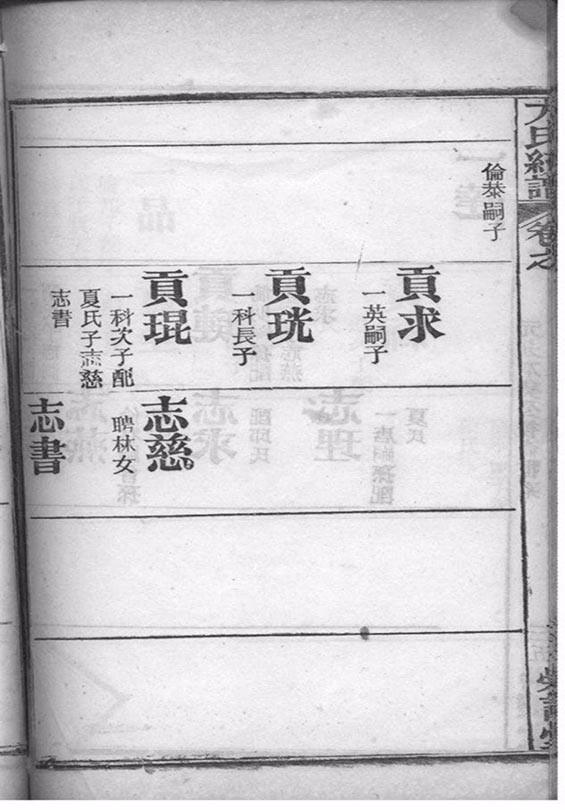 氏統譜
卷之
倫恭嗣子
貢求
一英嗣子
貢珖
一科長子
貢琨
一科次子配
夏氏子志慈
志書
志慈
聘林女
志書